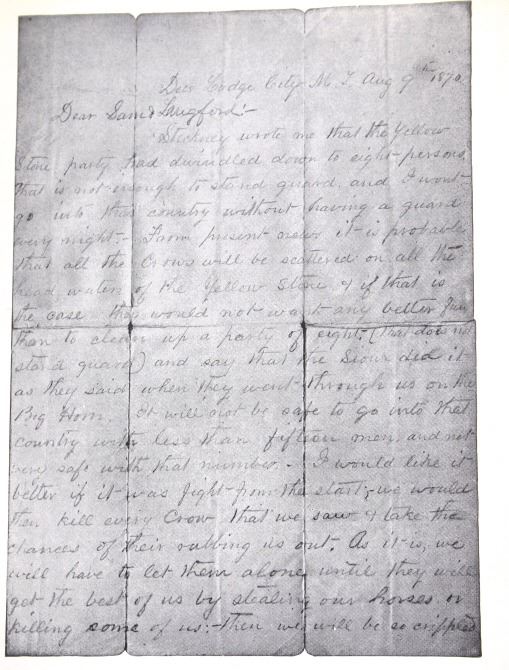 Deer Lodge City M. T. Aug 9th 1870.
Dear Sam & Langford:-
Stickney wrote me that the Yellow
Stone party had dwindled down to eight persons.
That is not enough to stand guard, and I wont
go into that country without having a guard
every night.- From present news it is probable
that all the Crows will be scattered on all the
head waters of the Yellow Stone, & if that is
the case they would not want any better fun
than to clean up a party of eight (that does not
stand guard) and say that the Sioux did it
as they said when they went through us on the
Big Horn. It will not be safe to go into that
country with less than fifteen men, and not
very safe with that number.- I would like it
better if it was fight from the start; we would
then kill every Crow that we saw & take the
chances of their rubbing us out. As it is, we
will have to let them alone until they will
get the best of us by stealing our horses or
killing some of us:- then we will be so crippled